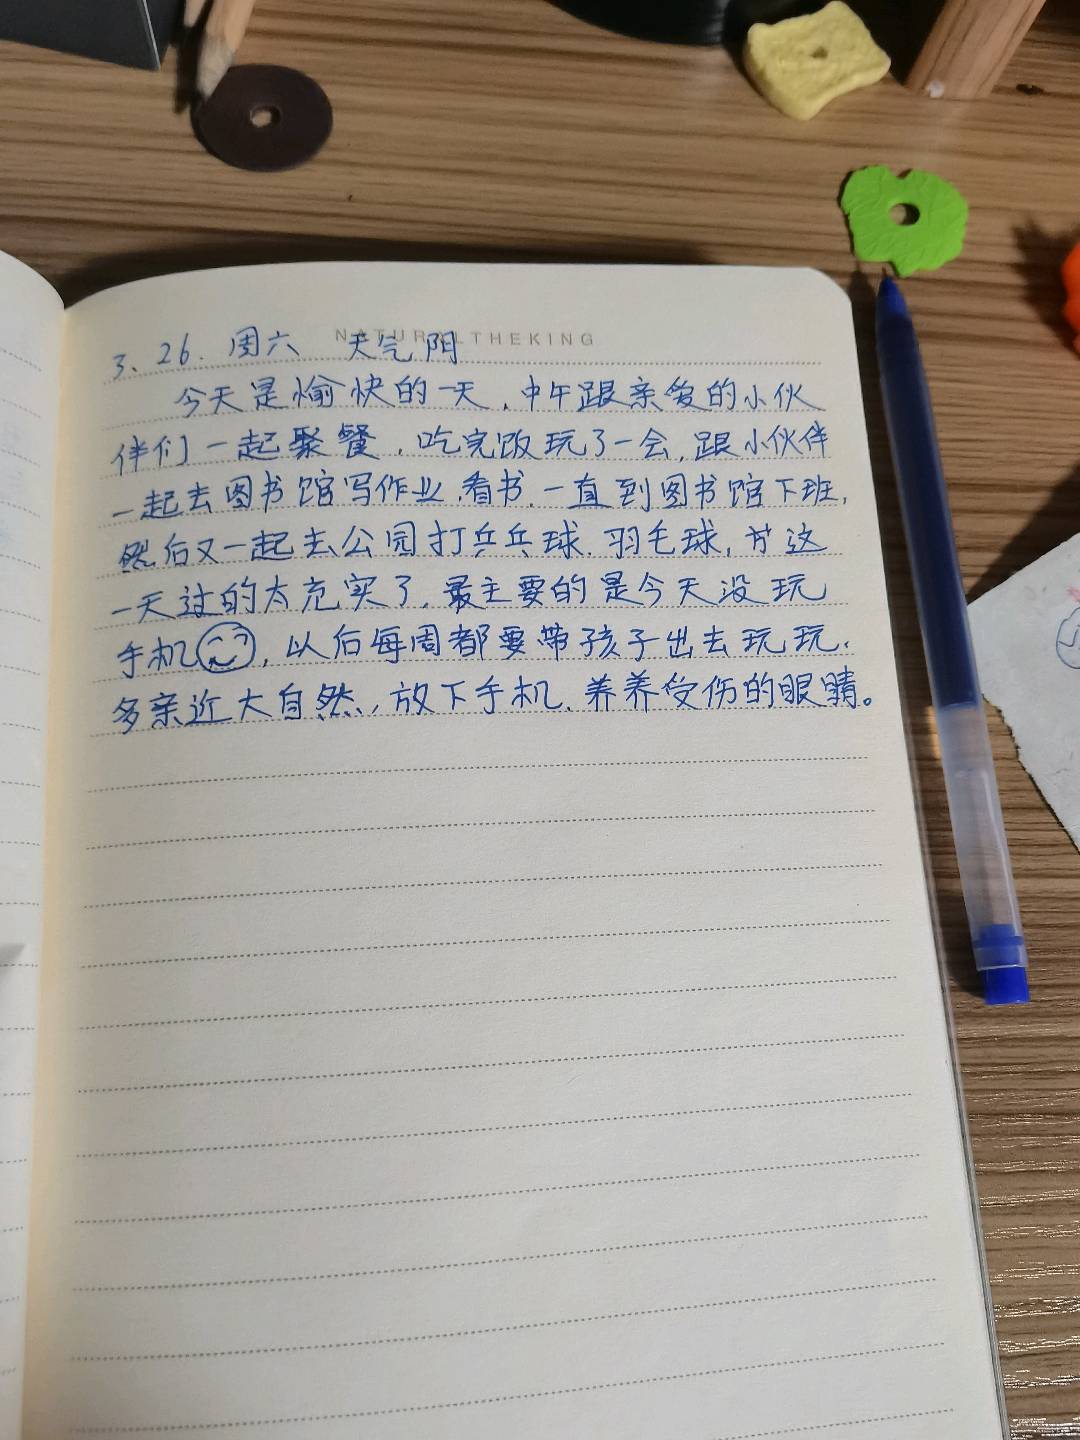 NATURALTHEKING
3、26. 周六 天气阴
今天是愉快的一天，中午跟亲爱的小伙
伴们一起聚餐，吃完饭玩了一会，跟小伙伴
一起去图书馆写作业、看书，一直到图书馆下班，
然后又一起去公园打乒乓球、羽毛球，这
一天过的太充实了，最主要的是今天没玩
手机，以后每周都要带孩子出去玩玩，
多亲近大自然，放下手机，养养受伤的眼睛。